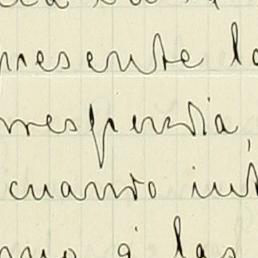 presente lo
rrespondia,
cuando int
mo á las